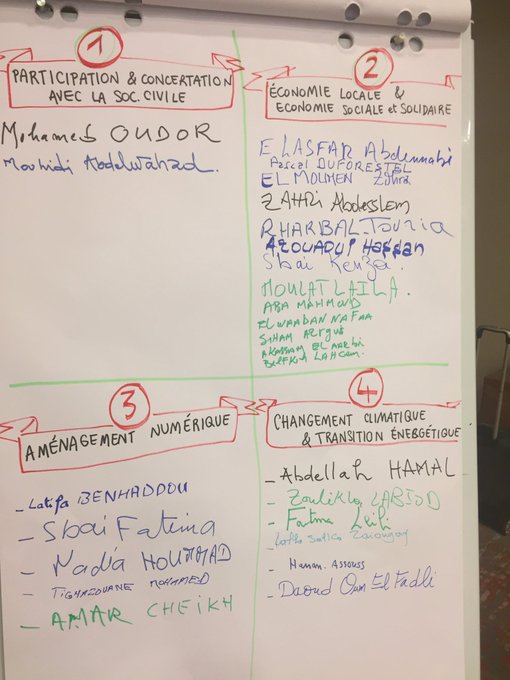 1
PARTICIPATION & CONCERTATION
AVEC LA SOC. CIVILE
Mohamed OUDOR
Mouhidi Abdelwahad.
2
ÉCONOMIE LOCALE &
ECONOMIE SOCIALE et SOLIDAIRE
ELASFAR Abdennabi
Pascal DUFORESTEL
EL MOUMEN Zohra
ZAHRI Abdesslem
RHARBAL Touria
AZOUAOUI Hassan
Sbai Kenza.
MOULAT LAILA.
ABA MAHMOUD
EL WAABAN NAFAA
SIHAM Azrgui
AKASSAM EL AARBI
LAHCEN.
3
AMÉNAGEMENT NUMÉRIQUE
- Latifa BENHADDOU
- Sbai Fatima
- Nadia HOUMMAD
- TIGHAZOUANE MOHAMED
- AMAR CHEIKH
4
CHANGEMENT CLIMATIQUE
& TRANSITION ÉNERGÉTIQUE
- Abdellah HAMAL
- Zoulikha LABIOD
- Fatma Leili
- Hanan Assouss
- Daoud Oum El Fadli